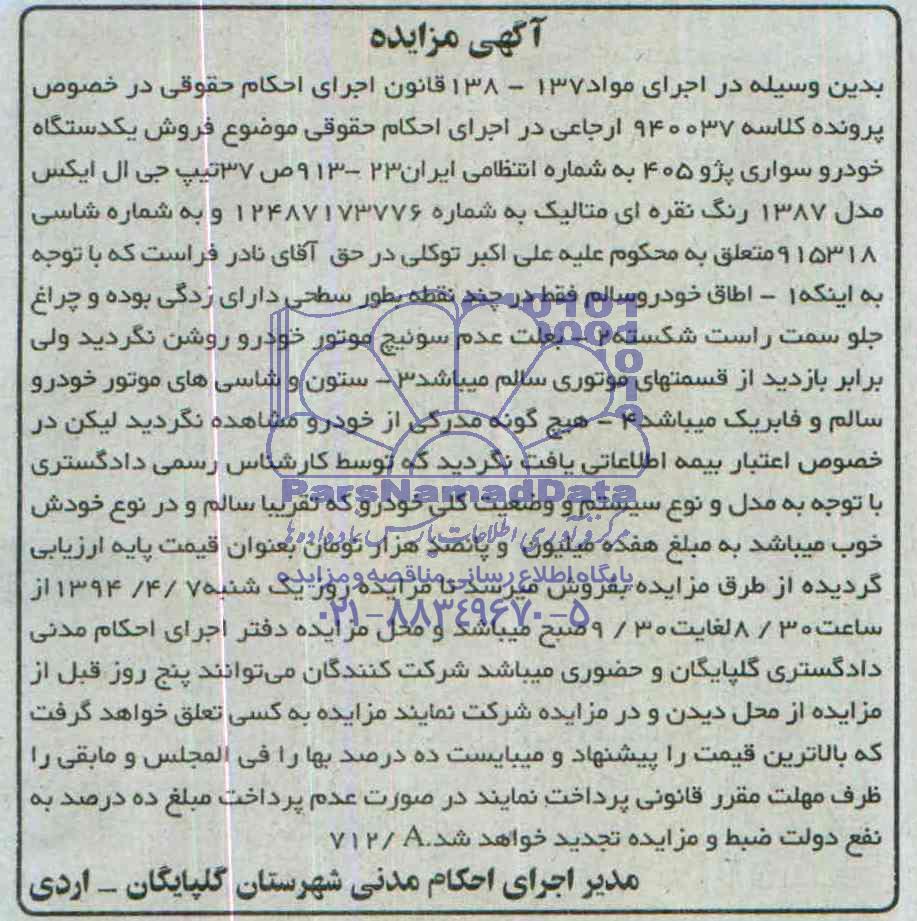 آگهی مزایده
بدین وسیله در اجرای مواد۱۳۷ – ۱۳۸ قانون اجرای احکام حقوقی در خصوص
پرونده کلاسه ۹۴۰۰۳۷ ارجاعی در اجرای احکام حقوقی موضوع فروش یکدستگاه
خودرو سواری پژو ۴۰۵ به شماره انتظامی ایران۲۳ –۹۱۳ص ۳۷تیپ جی ال ایکس
مدل ۱۳۸۷ رنگ نقره ای متالیک به شماره ۱۲۴۸۷۱۷۳۷۷۶ و به شماره شاسی
۹۱۵۳۱۸ متعلق به محکوم علیه علی اکبر توکلی در حق آقای نادر فراست که با توجه
به اینکه۱ – اطاق خودروسالم فقط در چند نقطه بطور سطحی دارای زدگی بوده و چراغ
جلو سمت راست شکسته۲ – بعلت عدم سوئیچ موتور خودرو روشن نگردید ولی
برابر بازدید از قسمتهای موتوری سالم میباشد۳ – ستون و شاسی های موتور خودرو
سالم و فابریک میباشد۴ – هیچ گونه مدرکی از خودرو مشاهده نگردید لیکن در
خصوص اعتبار بیمه اطلاعاتی یافت نگردید که توسط کارشناس رسمی دادگستری
با توجه به مدل و نوع سیستم و وضعیت کلی خودرو که تقریبا سالم و در نوع خودش
خوب میباشد به مبلغ هفده میلیون و پانصد هزار تومان بعنوان قیمت پایه ارزیابی
گردیده از طرق مزایده بفروش میرسد تا مزایده روز یک شنبه۷ /۴/ ۱۳۹۴ از
ساعت۳۰ / ۸ لغایت۳۰ / ۹ صبح میباشد و محل مزایده دفتر اجرای احکام مدنی
دادگستری گلپایگان و حضوری میباشد شرکت کنندگان می‌توانند پنج روز قبل از
مزایده از محل دیدن و در مزایده شرکت نمایند مزایده به کسی تعلق خواهد گرفت
که بالاترین قیمت را پیشنهاد و میبایست ده درصد بها را فی المجلس و مابقی را
ظرف مهلت مقرر قانونی پرداخت نمایند در صورت عدم پرداخت مبلغ ده درصد به
نفع دولت ضبط و مزایده تجدید خواهد شد.۷۱۲/A
مدیر اجرای احکام مدنی شهرستان گلپایگان – اردی
ParsNamadData
مرکز فرآوری اطلاعات پارس نماد داده ها
پایگاه اطلاع رسانی مناقصه و مزایده
۰۲۱-۸۸۳۴۹۶۷۰-۵